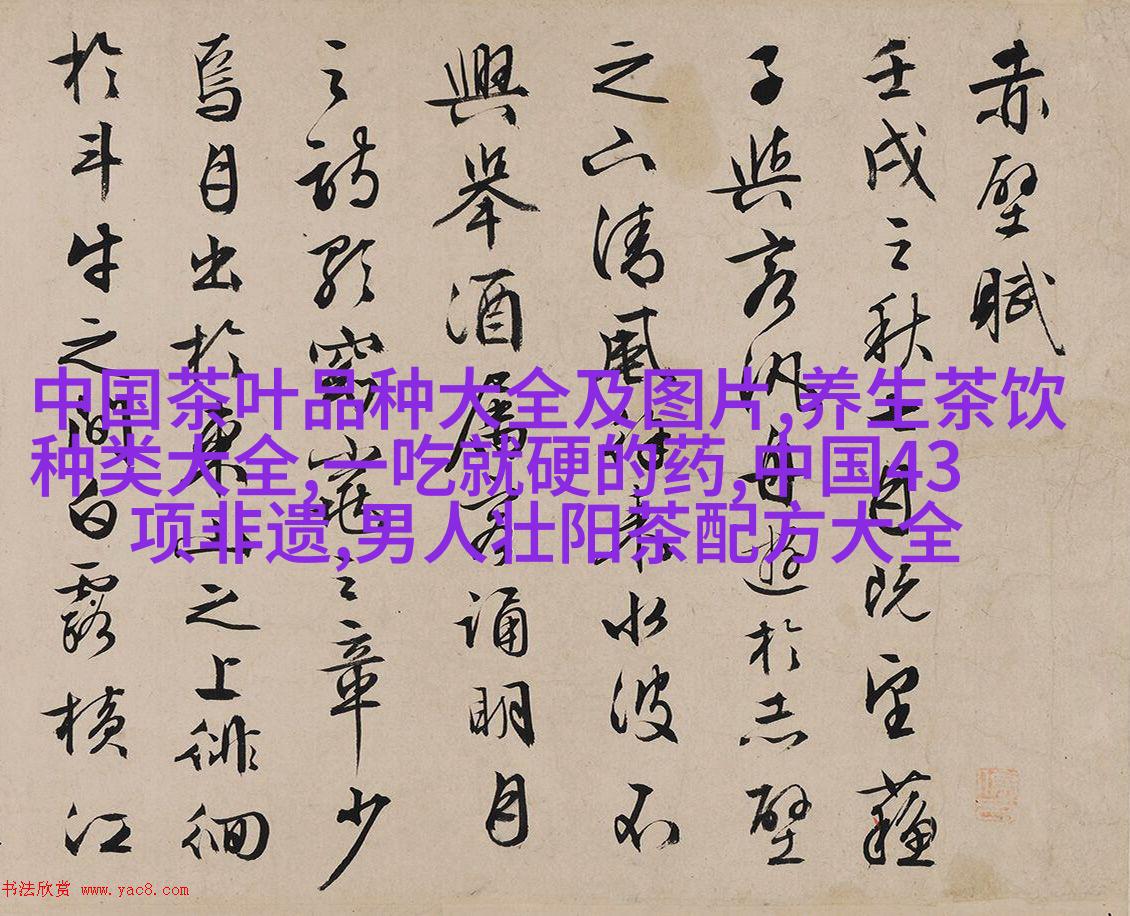 赤壁賦
壬戌之秋七月既望蘇
子與客汎舟遊於赤壁
之下清風徐來水波不
興舉酒屬客誦明月
之詩歌窈窕之章少
焉月出於東山之上徘徊
於斗牛之間白露橫江
中国茶叶品种大全及图片,养生茶饮
种类大全,一吃就硬的药,中国43
项非遗,男人壮阳茶配方大全
书法欣赏 www.yac8.com